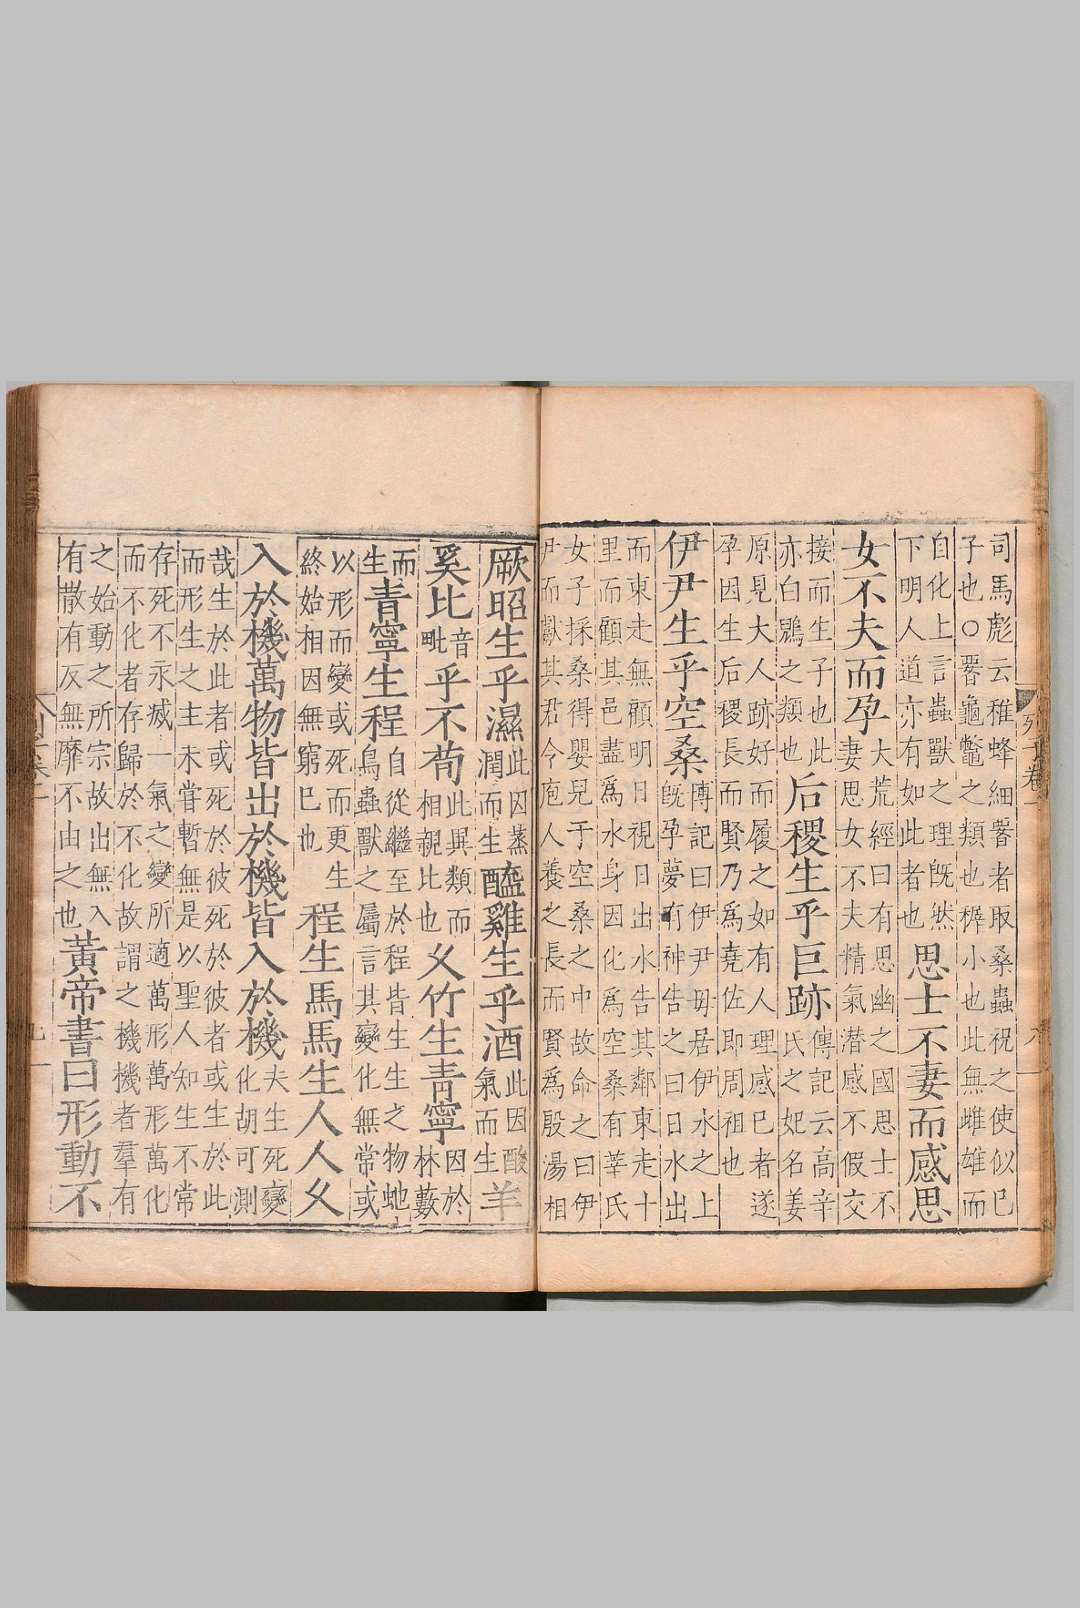 司馬彪云稚蜂細腰者取桑蟲祝之使似已
子也○腰龜鼈之類也稺小也此無雌雄而
自化上言蟲獸之理既然
下明人道亦有如此者也
思士不妻而感思
女不夫而孕
大荒經曰有思幽之國思士不
妻思女不夫精氣潜感不假交
接而生子也此
亦白鶂之類也
后稷生乎巨跡
傳記云高辛
氏之妃名姜
原見大人跡好而履之如有人理感已者遂
孕因生后稷長而賢乃爲堯佐即周祖也
伊尹生乎空桑
傳記曰伊尹毋居伊水之上
既孕夢有神告之曰曰水出
而東走無顧明日視曰出水告其鄰東走十
里而顧其邑盡爲水身因化爲空桑有莘氏
女子採桑得嬰兒于空桑之中故命之曰伊
尹而獻其君令庖人養之長而賢爲殷湯相
列子卷一
八
厥昭生乎濕
此因蒸
潤而生
醯雞生乎酒
此因酸
氣而生
羊
奚比
音
毗
乎不荀
此異類而
相親比也
乆竹生青寧
因於
林藪
而
生
青寧生程
自從繼至於程皆生生之物虵
鳥蟲獸之屬言其變化無常或
以形而變或死而更生
終始相因無窮已也
程生馬馬生人人乆
入於機萬物皆出於機皆入於機
夫生死變
化胡可測
哉生於此者或死於彼死於彼者或生於此
而形生之主未嘗暫無是以聖人知生不常
存死不永滅一氣之變所適萬形萬形萬化
而不化者存歸於不化故謂之機機者羣有
之始動之所宗故出無入
有散有反無靡不由之也
黃帝書曰形動不
九